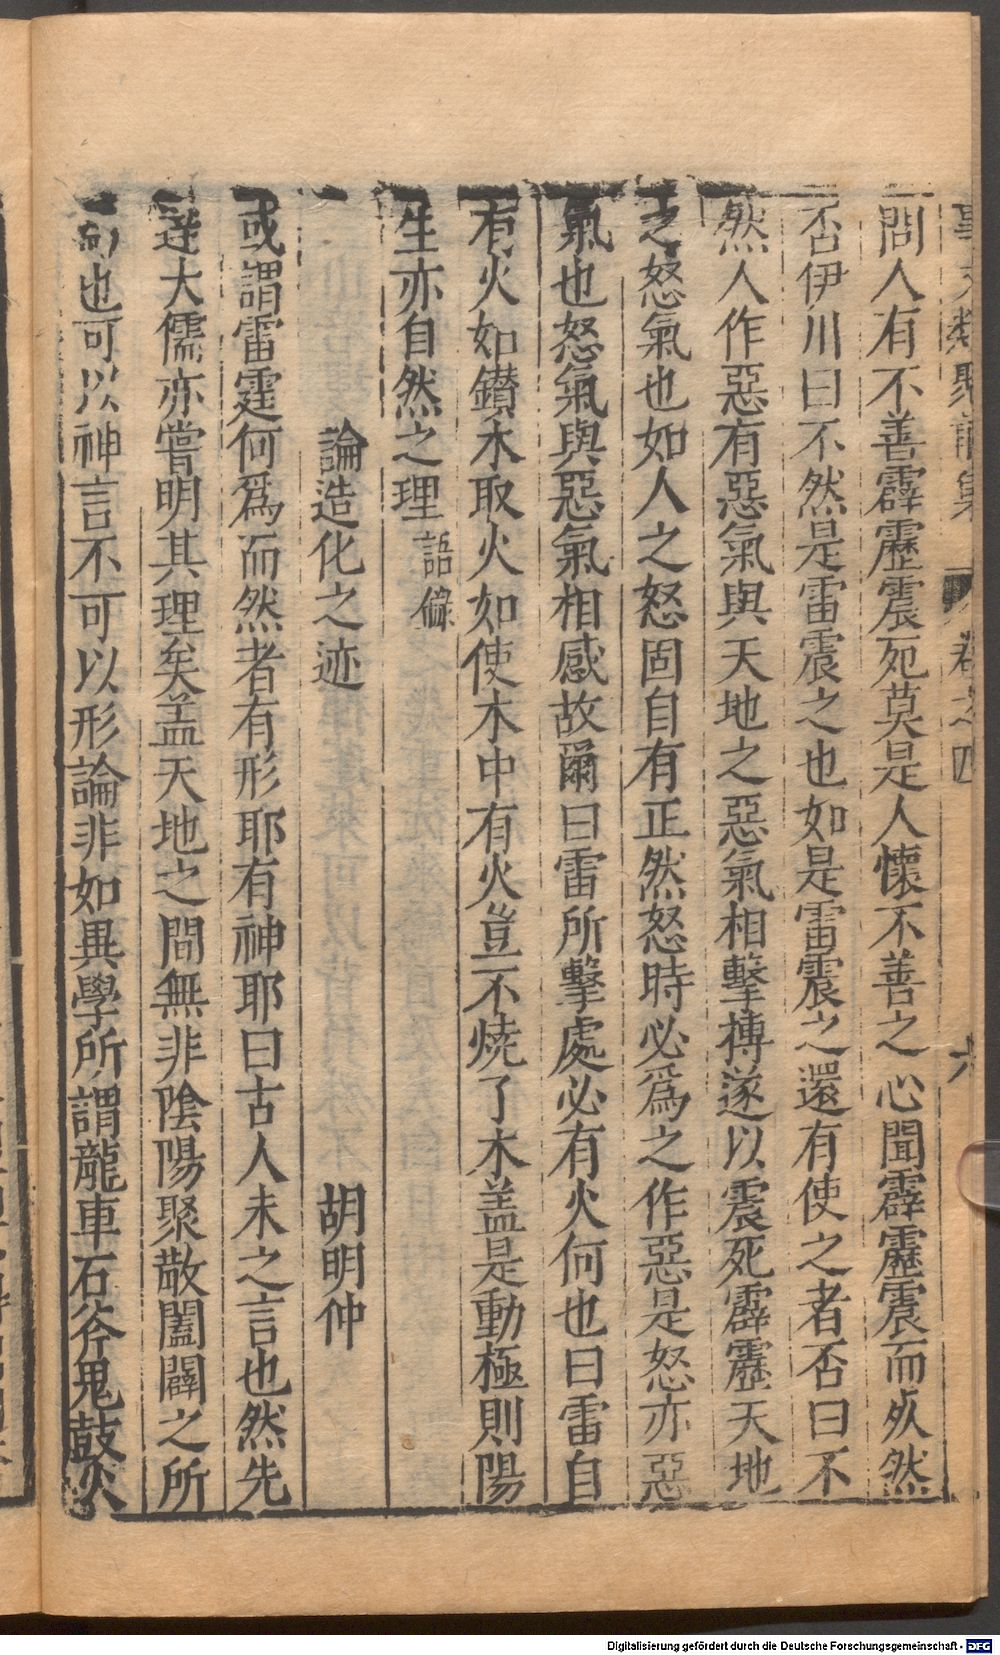 事文類聚前集 卷之四 六
問人有不善霹靂震死莫是人懷不善之心聞霹靂震而死然
否伊川曰不然是雷震之也如是雷震之還有使之者否曰不
然人作惡有惡氣與天地之惡氣相擊搏遂以震死霹靂天地
之怒氣也如人之怒固自有正然怒時必爲之作惡是怒亦惡
氣也怒氣與惡氣相感故爾曰雷所擊處必有火何也曰雷自
有火如鑚木取火如使木中有火豈不燒了木盖是動極則陽
生亦自然之理語錄
論造化之迹 胡明仲
或謂雷霆何爲而然者有形耶有神耶曰古人未之言也然先
逹大儒亦嘗明其理矣盖天地之間無非陰陽聚散闔闢之所
爲也可以神言不可以形論非如異學所謂龍車石斧鬼鼓火
Digitalisierung gefördert durch die Deutsche Forschungsgemeinschaft - DFG